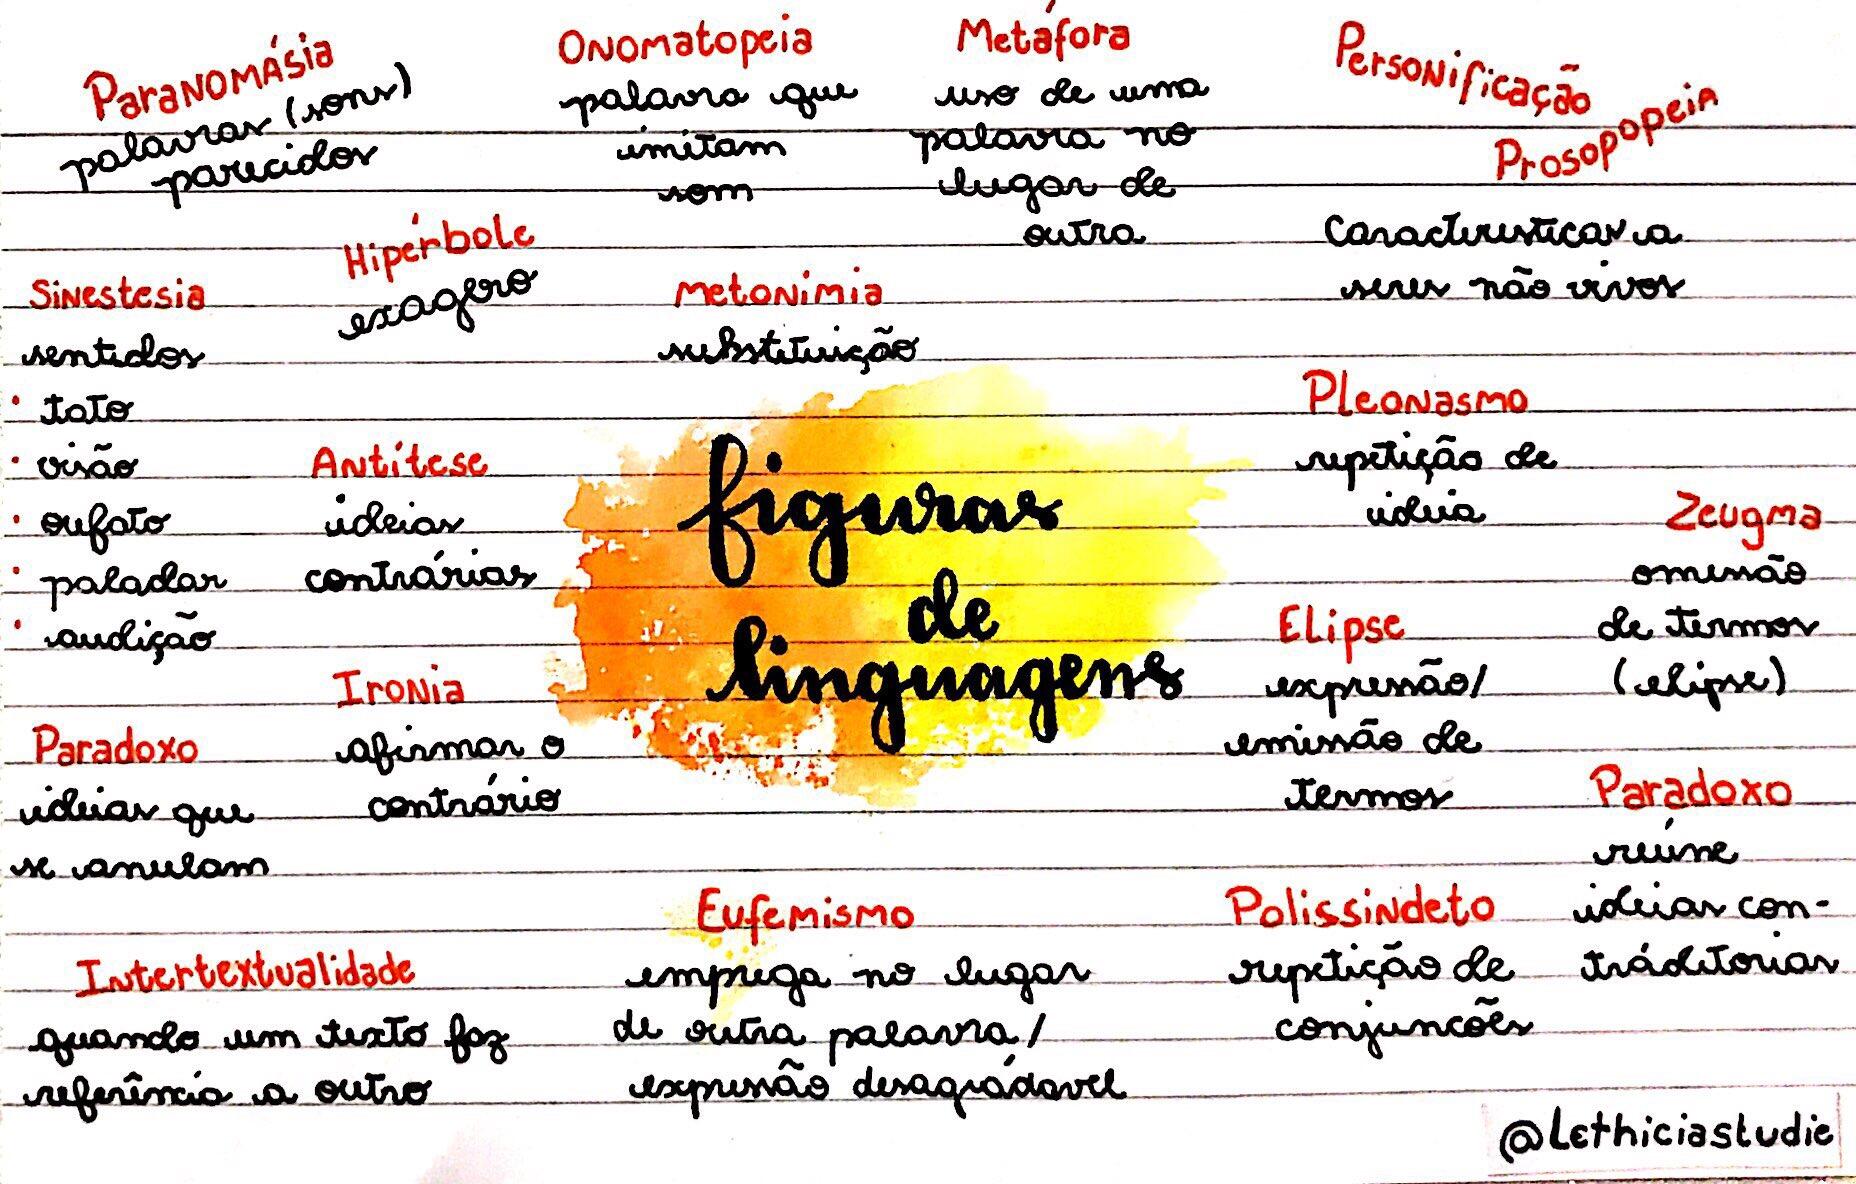 Paranomásia
palavras (sons)
parecidos
Onomatopeia
palavra que
imitam
som
Metáfora
uso de uma
palavra no
lugar de
outra
Personificação
Prosopopeia
Características a
seres não vivos
Sinestesia
sentidos
• tato
• visão
• oufato
• paladar
• audição
Hipérbole
exagero
Metonímia
substituição
Antítese
ideias
contrárias
figuras
de
linguagens
Pleonasmo
repetição de
ideia
Zeugma
omissão
de termos
(elipse)
Elipse
expressão/
emissão de
termos
Ironia
afirmar o
contrário
Paradoxo
ideias que
se anulam
Paradoxo
reúne
ideias con-
tráditorias
Eufemismo
emprega no lugar
de outra palavra/
expressão desagrádavel
Polissindeto
repetição de
conjuncões
Intertextualidade
quando um texto faz
referência a outro
@lethiciastudie